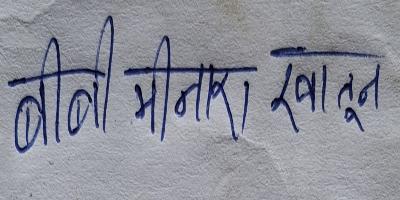 बीबी मीनारा खातून